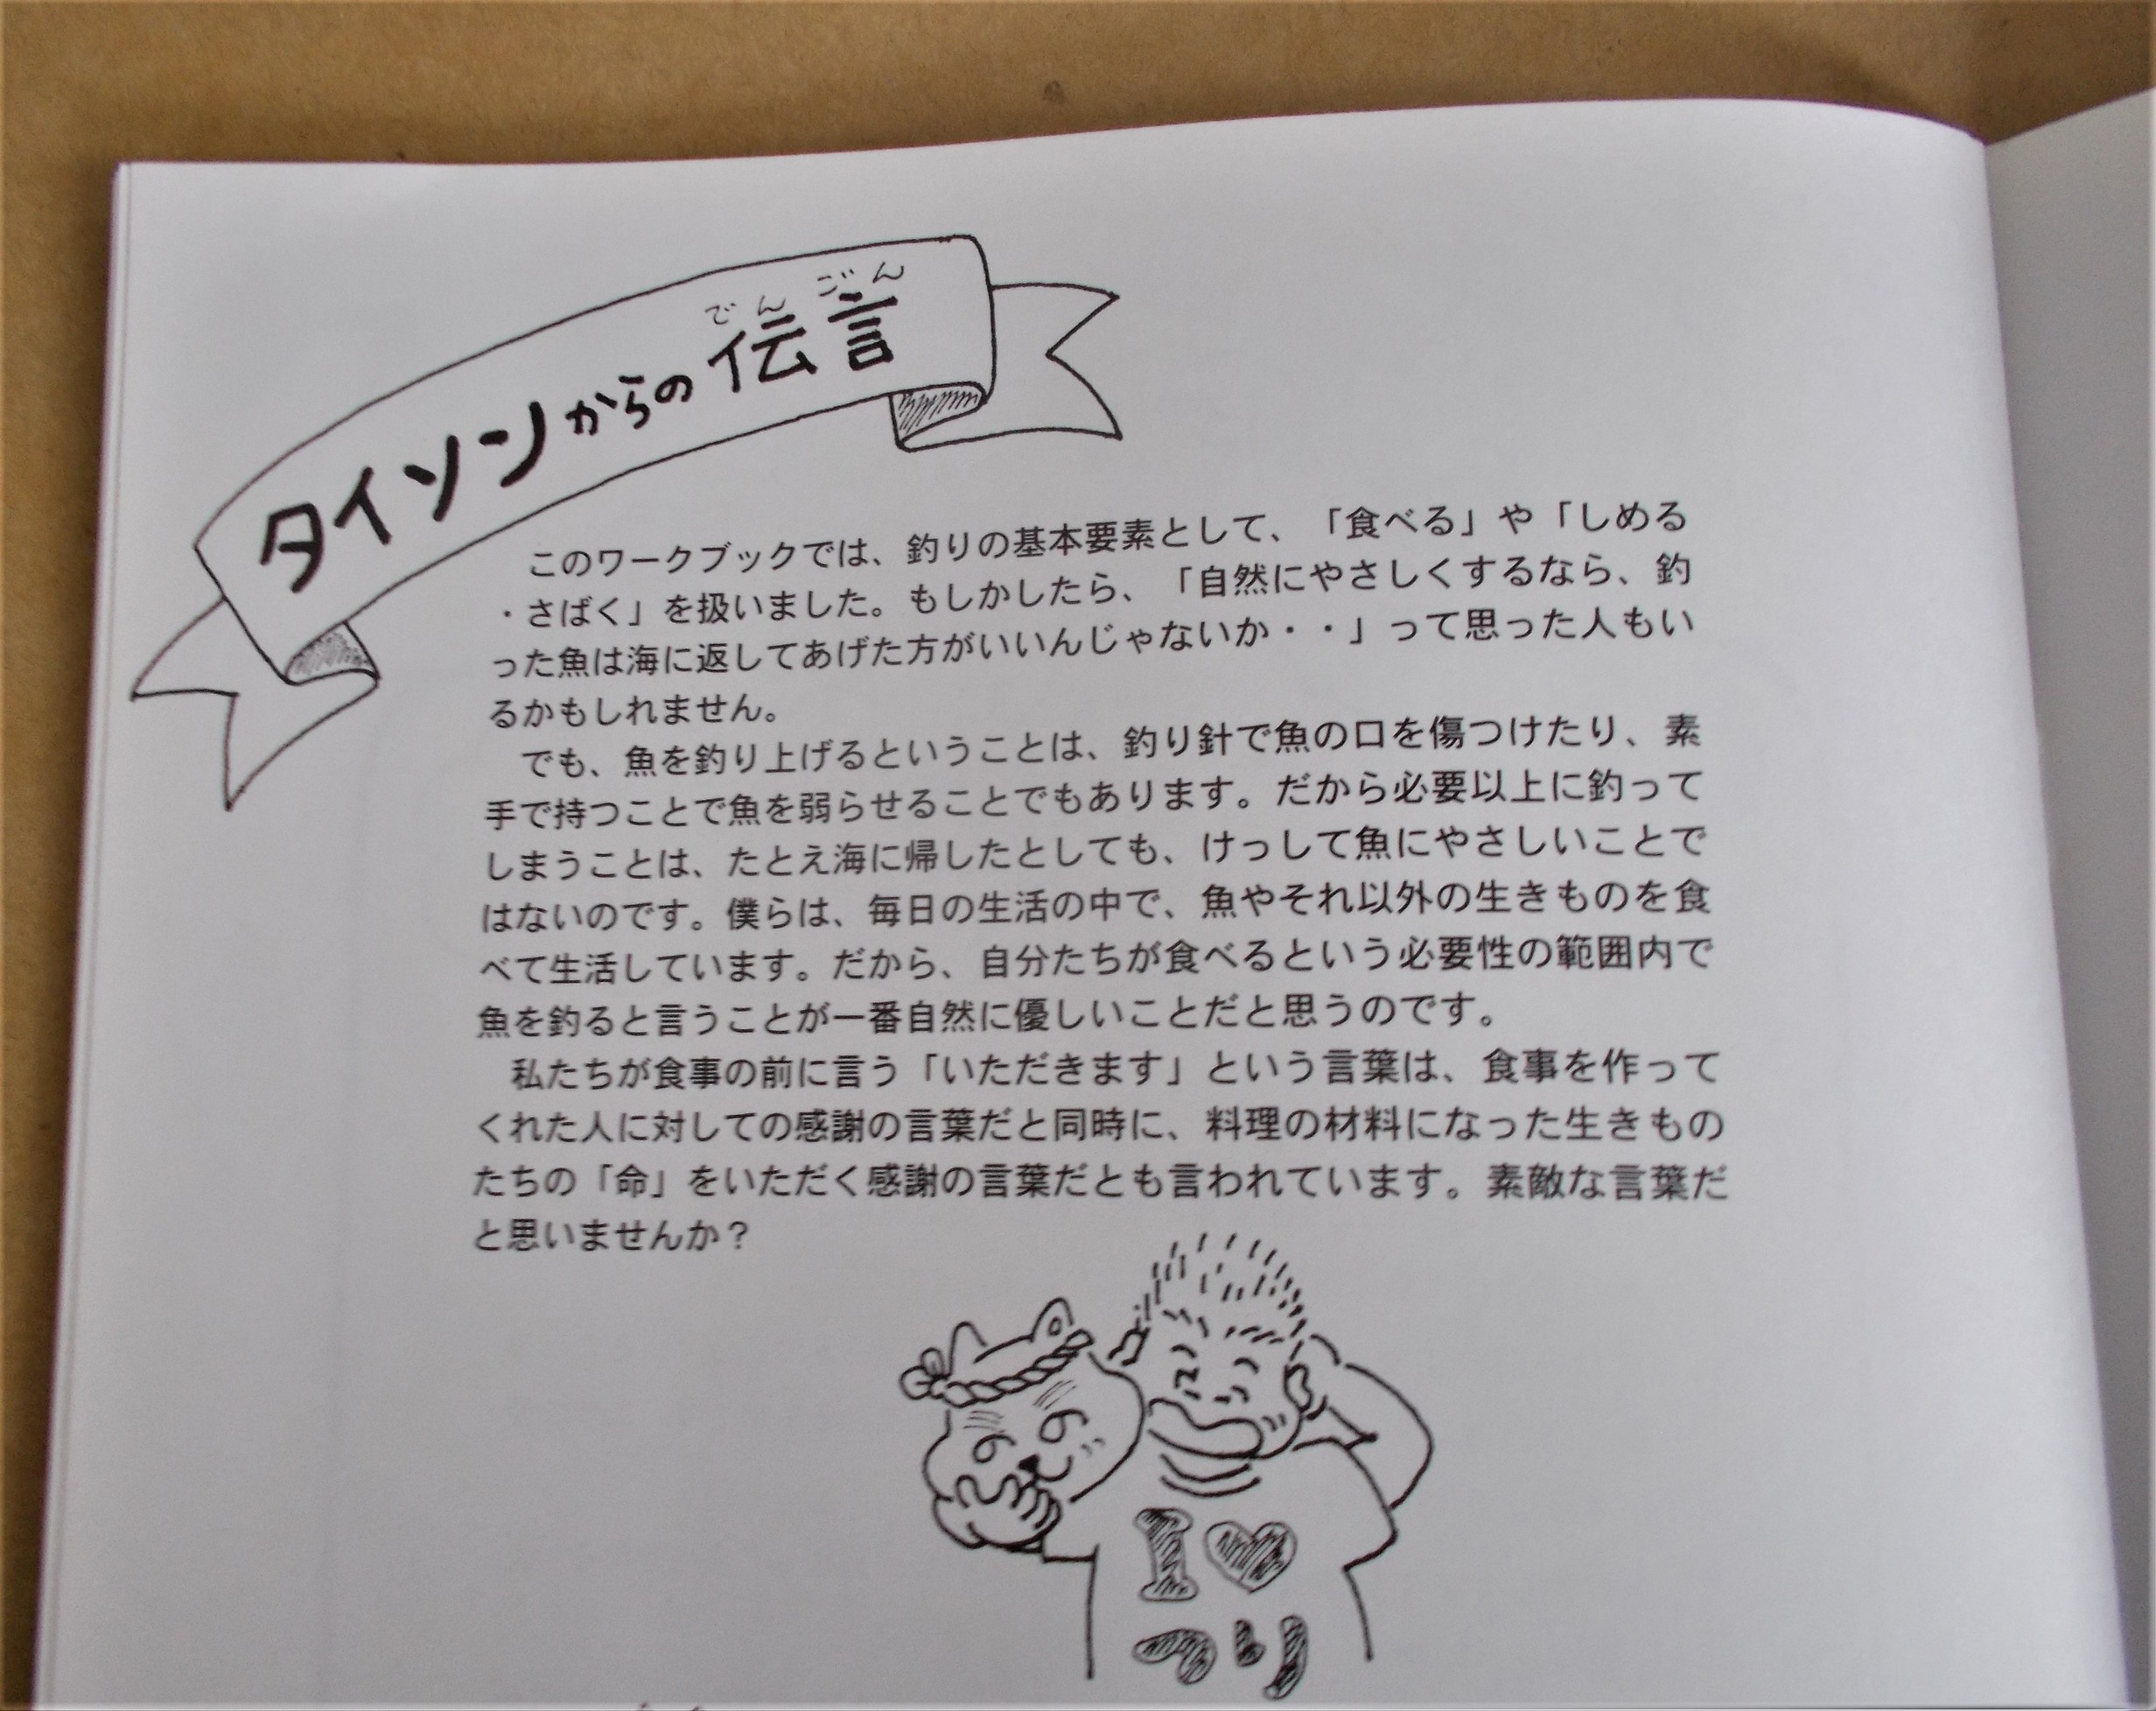 タイソンからの伝言
でんごん
このワークブックでは、釣りの基本要素として、「食べる」や「しめる
・さばく」を扱いました。もしかしたら、「自然にやさしくするなら、釣
った魚は海に返してあげた方がいいんじゃないか・・」って思った人もい
るかもしれません。
でも、魚を釣り上げるということは、釣り針で魚の口を傷つけたり、素
手で持つことで魚を弱らせることでもあります。だから必要以上に釣って
しまうことは、たとえ海に帰したとしても、けっして魚にやさしいことで
はないのです。僕らは、毎日の生活の中で、魚やそれ以外の生きものを食
べて生活しています。だから、自分たちが食べるという必要性の範囲内で
魚を釣ると言うことが一番自然に優しいことだと思うのです。
私たちが食事の前に言う「いただきます」という言葉は、食事を作って
くれた人に対しての感謝の言葉だと同時に、料理の材料になった生きもの
たちの「命」をいただく感謝の言葉だとも言われています。素敵な言葉だ
と思いませんか？
I♥
つり